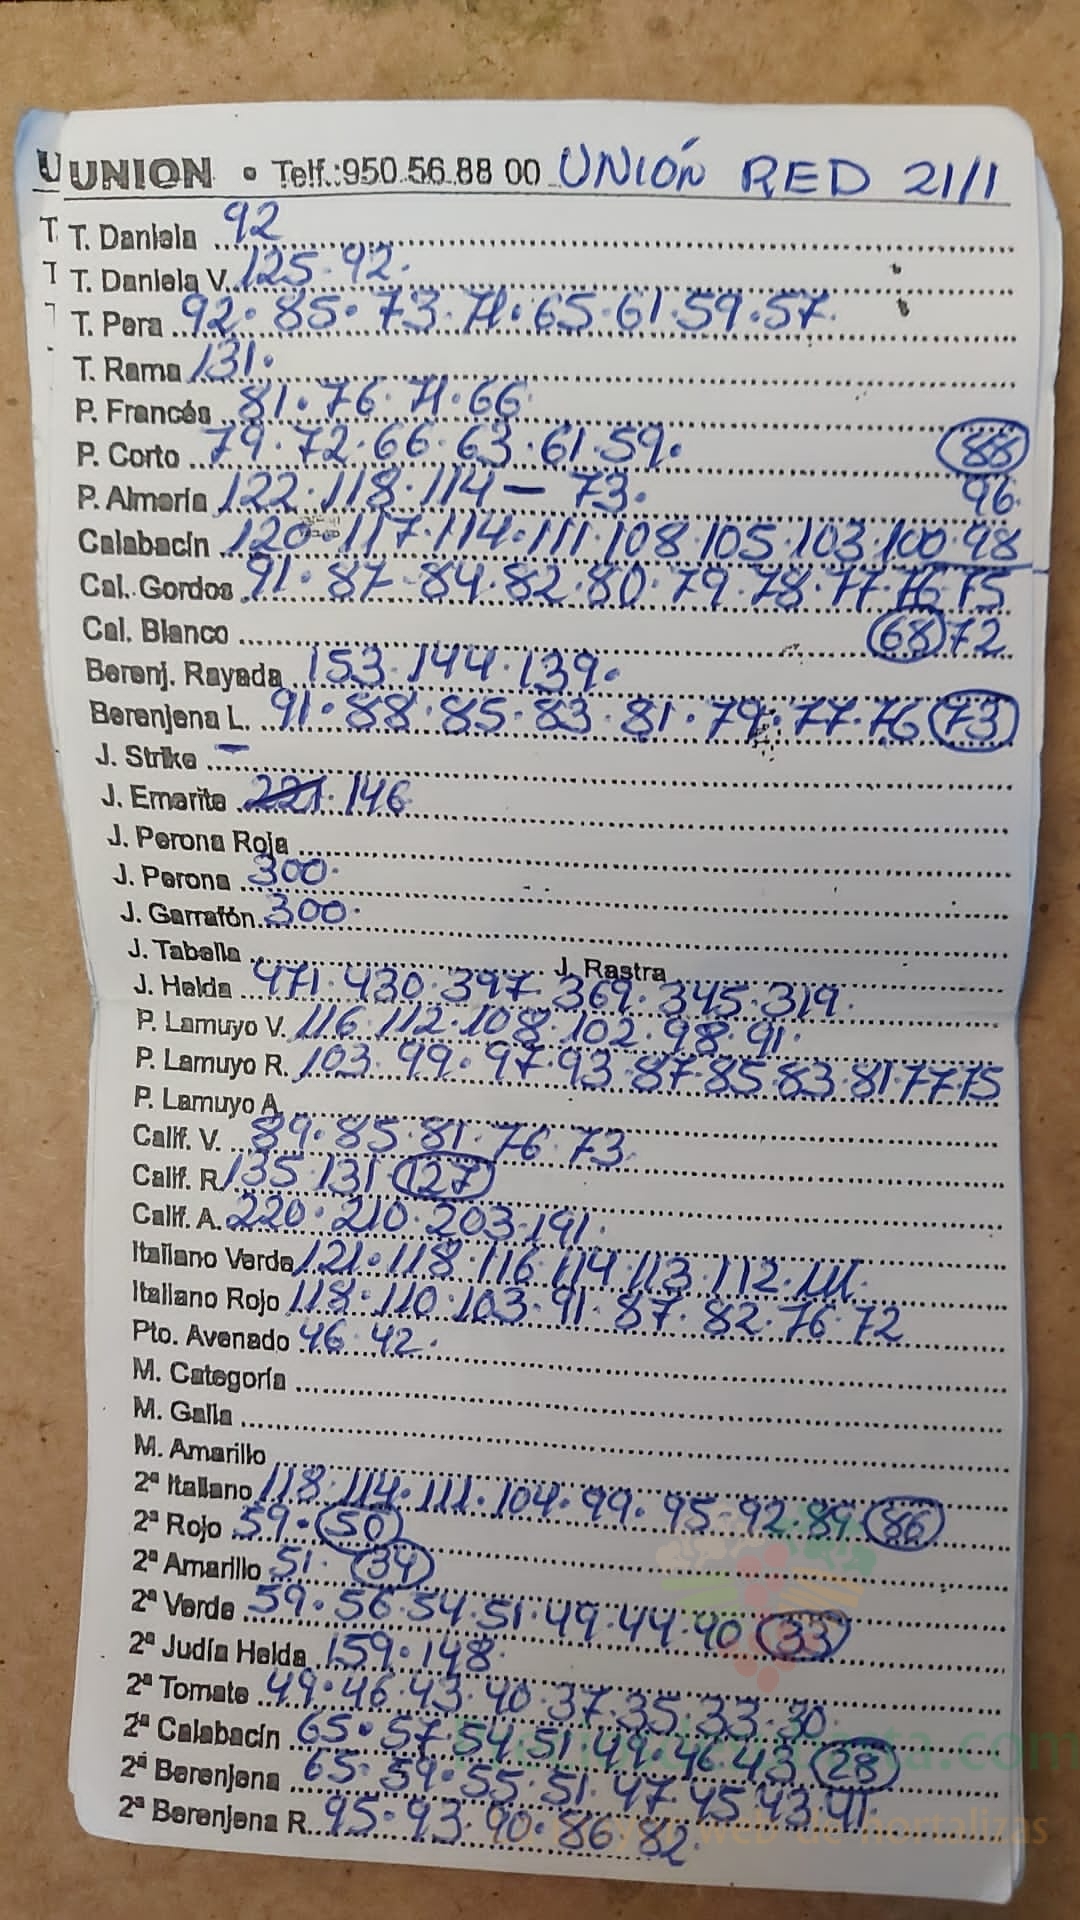 UUNION • Telf.:950.56.88 00 UNIÓN RED 21/1
T. Daniela 92
T. Daniela V. 125·92·
T. Pera 92·85·73·71·65·61·59·57·
T. Rama 131·
P. Francés 81·76·71·66·
P. Corto 79·72·66·63·61·59· 88
P. Almería 122·118·114 — 73· 96
Calabacín 120·117·114·111·108·105·103·100·98
Cal. Gordos 91·87·84·82·80·79·78·77·76·75
Cal. Blanco 68 72
Berenj. Rayada 153·144·139·
Berenjena L. 91·88·85·83·81·79·77·76 73
J. Strike –
J. Emerite 221·146
J. Perona Roja
J. Perona 300·
J. Garrafón 300·
J. Tabella J. Rastra
J. Helda 471·430·397·369·345·319·
P. Lamuyo V. 116·112·108·102·98·91·
P. Lamuyo R. 103·99·97·93·87·85·83·81·77·75
P. Lamuyo A.
Calif. V. 89·85·81·76·73
Calif. R. 135·131·127
Calif. A. 220·210·203·191·
Italiano Verde 121·118·116·114·113·112·111·
Italiano Rojo 118·110·103·91·87·82·76·72
Pto. Avenado 46·42·
M. Categoría
M. Galia
M. Amarillo
2ª Italiano 118·114·111·104·99·95·92·89·86
2ª Rojo 59·50
2ª Amarillo 51·34
2ª Verde 59·56·54·51·49·44·40 33
2ª Judía Helda 159·148
2ª Tomate 49·46·43·40·37·35·33·30·
2ª Calabacín 65·57·54·51·49·46·43 28
2ª Berenjena 65·59·55·51·47·45·43·41·
2ª Berenjena R. 95·93·90·86·82·
web de hortalizas